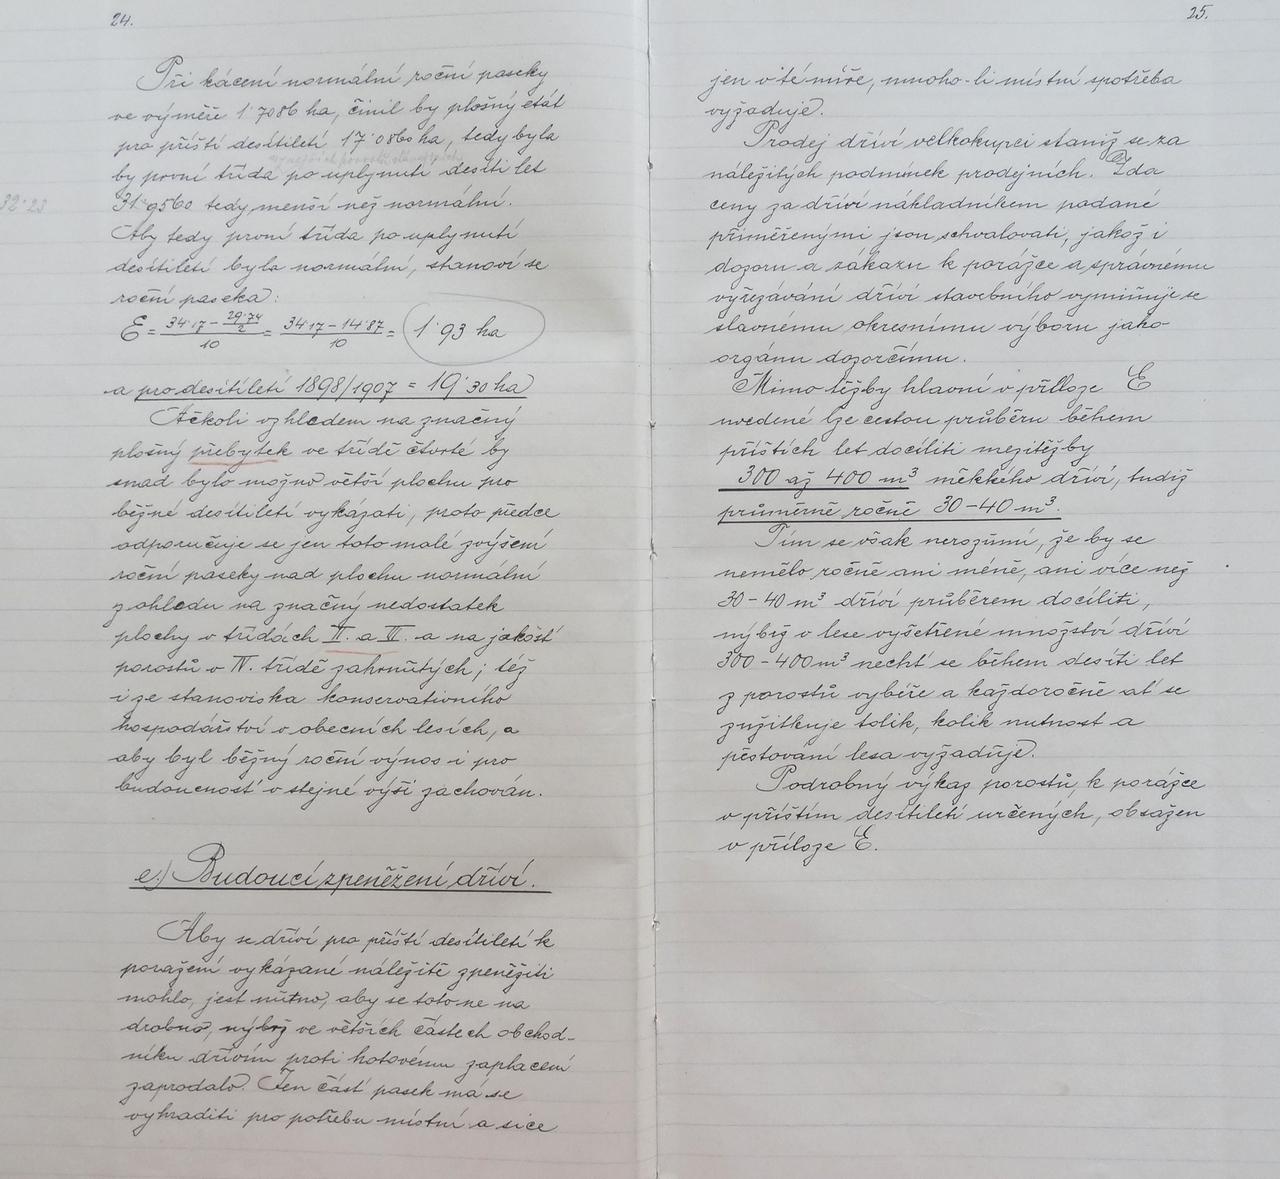 24.
Při kácení normální roční paseky
ve výměře 1·7086 ha, činil by plošný etát
pro příští desítiletí 17·0860 ha, tedy byla
by první třída po uplynutí desíti let
32·23
31·9560 tedy menší než normální.
Aby tedy první třída po uplynutí
desítiletí byla normální, stanoví se
roční paseka:
E = (34·17 − 29·74/2)/10 = (34·17 − 14·87)/10 = 1·93 ha
a pro desítiletí 1898/1907 = 19·30 ha
Ačkoli vzhledem na značný
plošný přebytek ve třídě čtvrté by
snad bylo možno větší plochu pro
běžné desítiletí vykázati, proto předce
odporučuje se jen toto malé zvýšení
roční paseky nad plochu normální
z ohledu na značný nedostatek
plochy v třídách II. a III. a na jakost
porostů v IV. třídě zahrnutých; též
i ze stanoviska konservativního
hospodářství v obecních lesích, a
aby byl běžný roční výnos i pro
budoucnost v stejné výši zachován.
e.) Budoucí zpeněžení dříví.
Aby se dříví pro příští desítiletí k
poražení vykázané náležitě zpeněžiti
mohlo, jest nutno, aby se toto ne na
drobno, nýbrž ve větších částech obchod-
níku dřívím proti hotovému zaplacení
zaprodalo. Jen část pasek má se
vyhraditi pro potřebu místní a sice
25.
jen v té míře, mnoho-li místní spotřeba
vyžaduje.
Prodej dříví velkokupci staniž se za
náležitých podmínek prodejních. Zda
ceny za dříví nákladníkem podané
přiměřenými jsou, schvalovati, jakož i
dozoru a zákazu k porážce a správnému
vyřezávání dříví stavebního vymiňuje se
slavnému okresnímu výboru jako
orgánu dozorčímu.
Mimo těžby hlavní v příloze E
uvedené lze cestou průběru během
příštích let docíliti mezitěžby
300 až 400 m³ měkkého dříví, tudíž
průměrně ročně 30–40 m³.
Tím se však nerozumí, že by se
nemělo ročně ani méně, ani více než
30–40 m³ dříví průběrem docíliti,
nýbrž v lese vyšetřené množství dříví
300–400 m³ nechť se během desíti let
z porostů vybéře a každoročně ať se
zužitkuje tolik, kolik nutnost a
pěstování lesa vyžaduje.
Podrobný výkaz porostů, k porážce
v příštím desítiletí určených, obsažen
v příloze E.